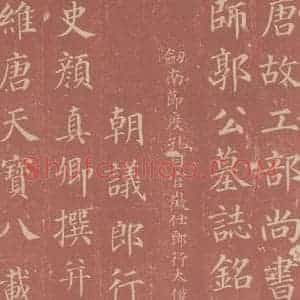 唐故工部尚書
師郭公墓誌銘
劔南節度孔目官徵仕郎行太
朝議郎行
史顏真卿撰并
維唐天寶八載